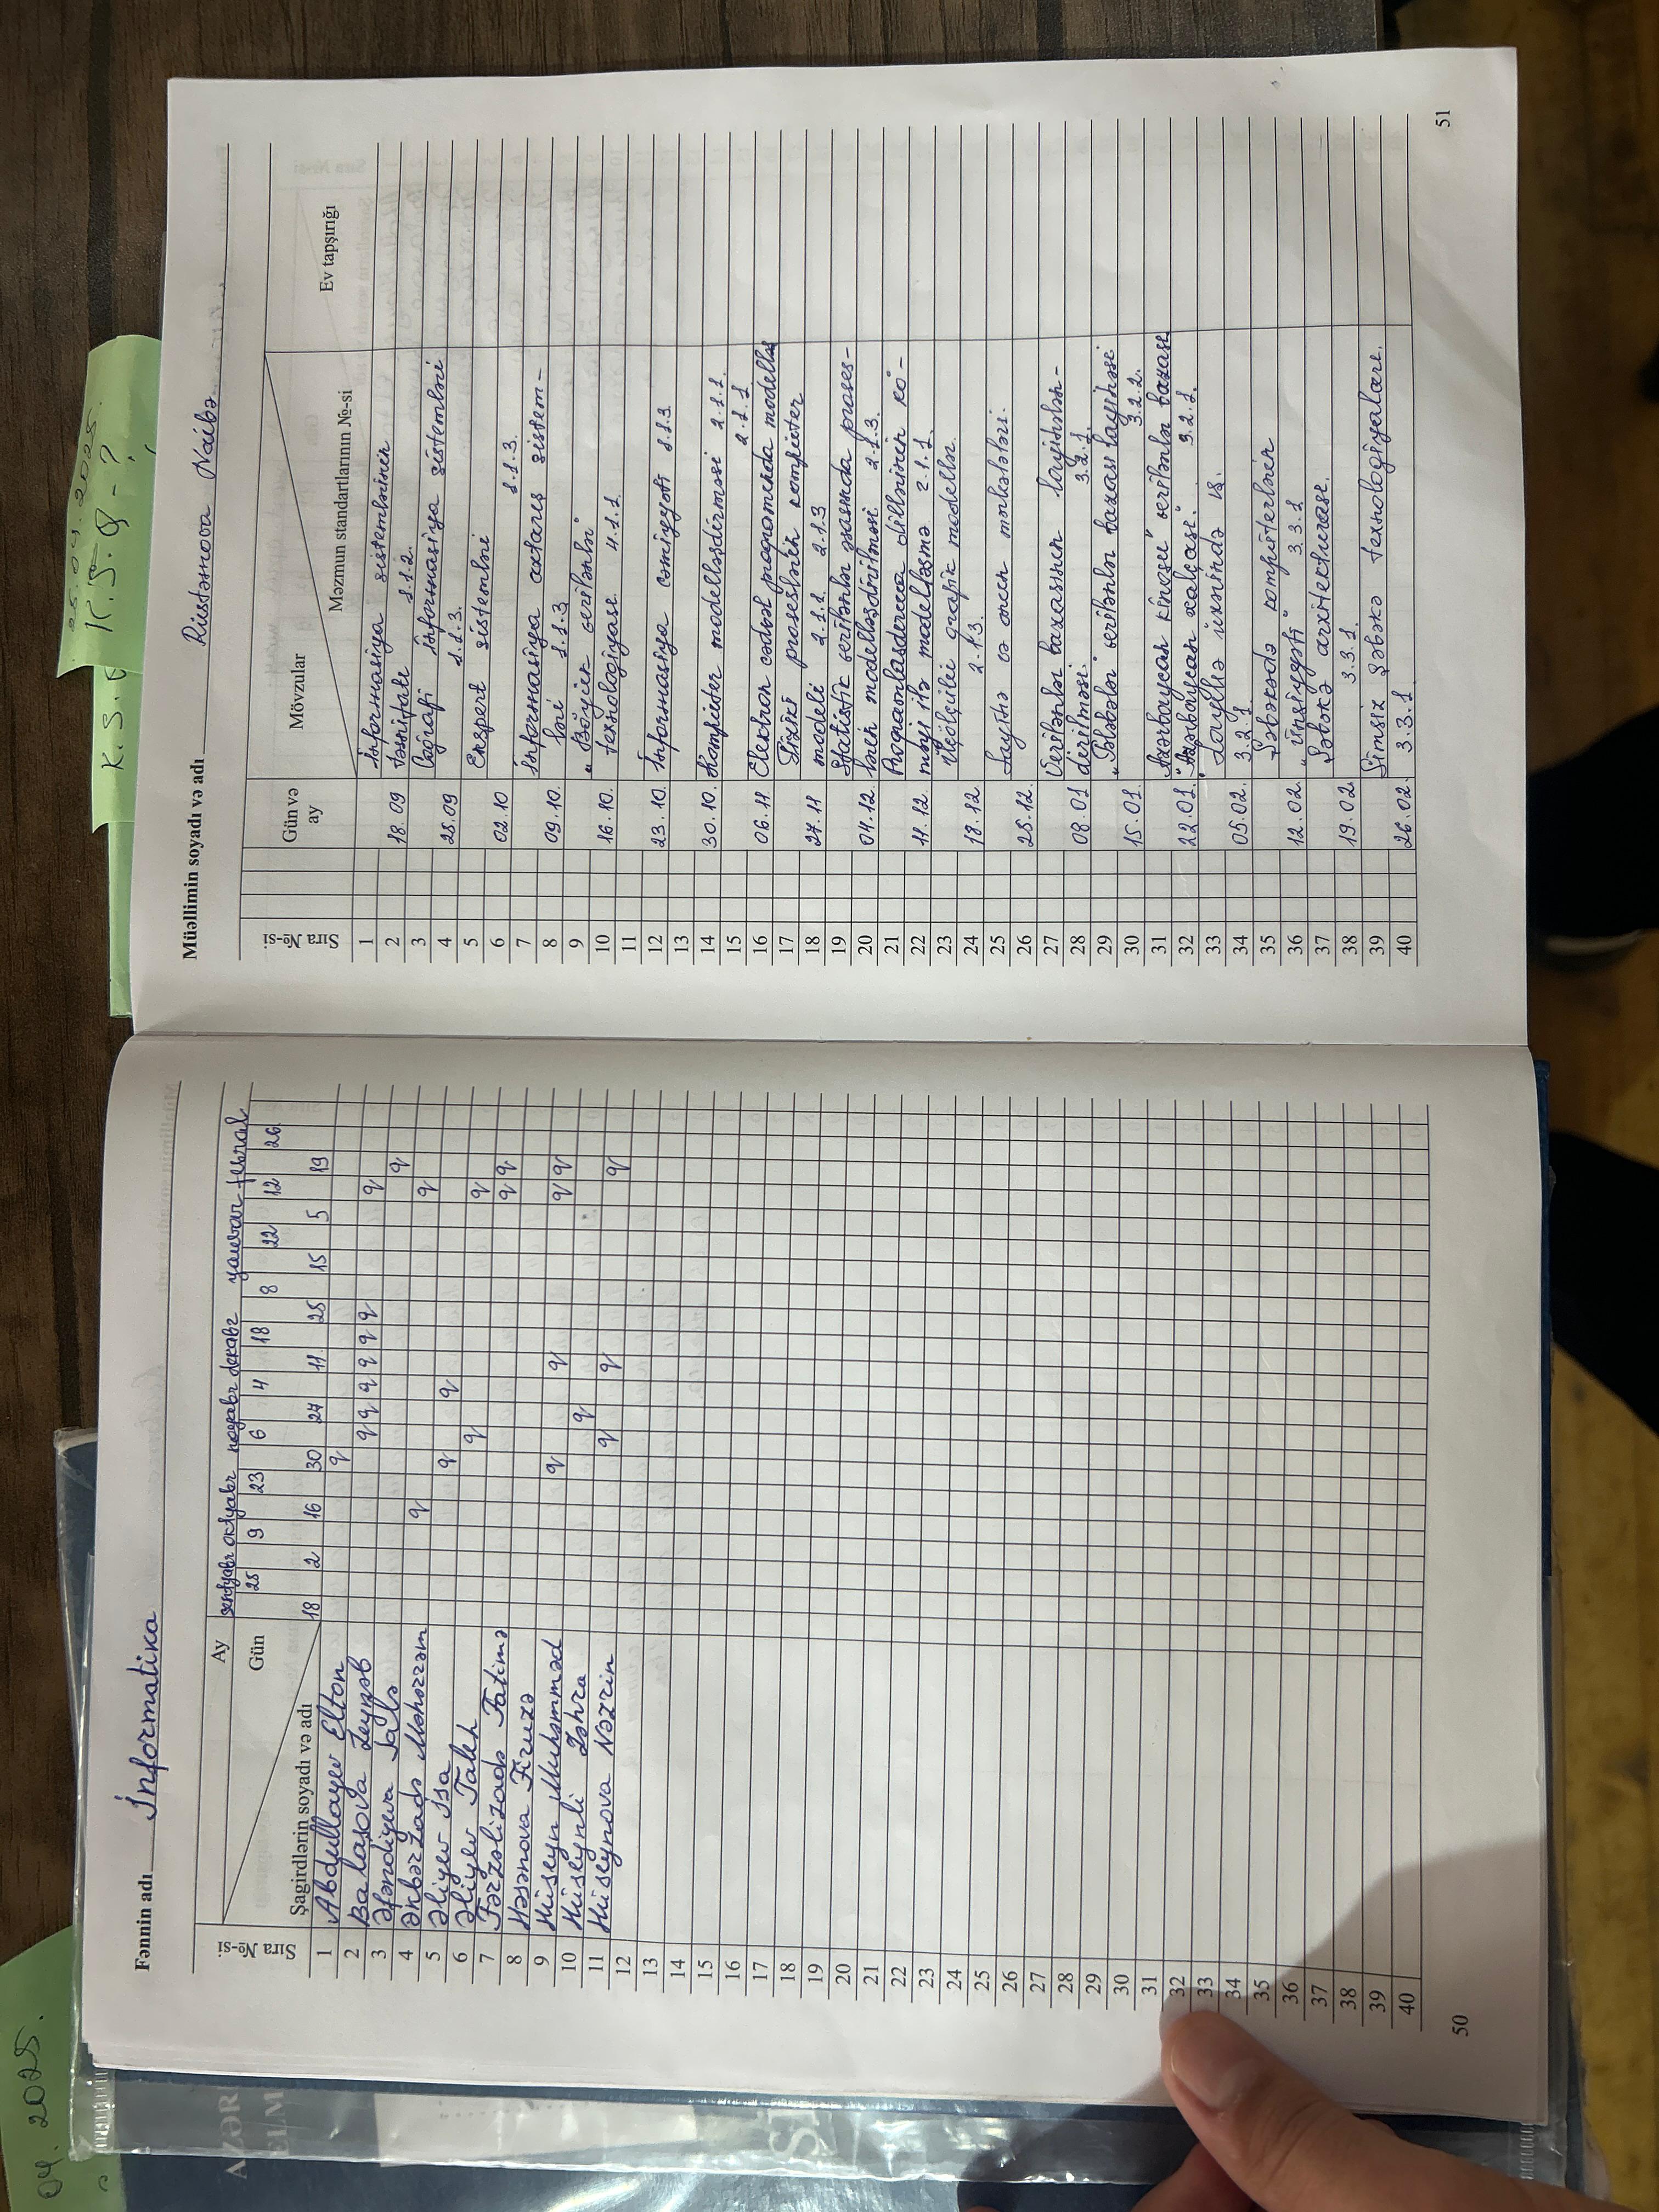 04. 2025.
AZƏR
ELM
K. S. Q
25.04.2025.
K.S.Q - ?
Fənnin adı İnformatika
Sıra №-si
Ay sentyabr oktyabr noyabr dekabr yanvar fevral
Gün 25 9 23 6 4 18 8 22 12 26
Şagirdlərin soyadı və adı 18 2 16 30 27 11 25 15 5 19
1 Abdullayev Elton q
2 Balaşova Zeynəb q q q q q q q
3 Əfəndiyeva Jalə q
4 Əkbərzadə Məhərrəm q q
5 Əliyev İsa q q
6 Əliyev Taleh q q
7 Fərzəlizadə Fatimə q q
8 Həsənova Firuzə
9 Hüseyn Muhəmməd q q q q
10 Hüseynli Zəhra q
11 Hüseynova Nəzrin q q q
12
13
14
15
16
17
18
19
20
21
22
23
24
25
26
27
28
29
30
31
32
33
34
35
36
37
38
39
40
50
Müəllimin soyadı və adı Rüstəmova Naibə
Sıra №-si Gün və ay Mövzular Ev tapşırığı
Məzmun standartlarının №-si
1 İnformasiya sistemlərinin
2 18.09 təsnifatı 1.1.2.
3 Coğrafi informasiya sistemləri
4 25.09 1.1.3.
5 Ekspert sistemləri
6 02.10 1.1.3.
7 İnformasiya axtarış sistem-
8 09.10. ləri 1.1.3
9 „Böyük verilənlər"
10 16.10. texnologiyası. 4.1.1.
11
12 23.10. İnformasiya cəmiyyəti 1.1.3.
13
14 30.10. Kompüter modelləşdirməsi 2.1.1.
15 2.1.1
16 06.11 Elektron cədvəl proqramında modelləş
17 Fiziki proseslərin kompüter
18 27.11 modeli 2.1.1. 2.1.3
19 Statistik verilənlər əsasında proses-
20 04.12. lərin modelləşdirilməsi 2.1.3.
21 Proqramlaşdırma dillərinin kö-
22 11.12. məyi ilə modelləşmə 2.1.1.
23 Üçölçülü qrafik modellər.
24 18.12. 2.1.3.
25 Layihə və onun mərhələləri.
26 25.12.
27 Verilənlər bazasının layihələn-
28 08.01 dirilməsi. 3.2.1.
29 „Tələbələr" verilənlər bazası layihəsi
30 15.01. 3.2.2.
31 "Azərbaycan kinosu" verilənlər bazası
32 22.01. "Azərbaycan xalçası." 3.2.1.
33 Layihə üzərində iş.
34 05.02. 3.2.1.
35 Şəbəkədə kompüterlərin
36 12.02. „ünsiyyəti" 3.3.1
37 Şəbəkə arxitekturası.
38 19.02. 3.3.1.
39 Simsiz şəbəkə texnologiyaları.
40 26.02. 3.3.1
51